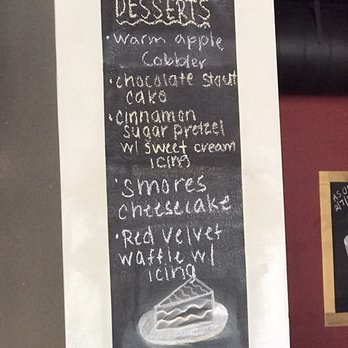 DESSERTS
• warm apple
cobbler
• chocolate stout
cake
• cinnamon
sugar pretzel
w/ sweet cream
icing
• Smores
cheesecake
• Red velvet
waffle w/
icing
AS O
2/7/